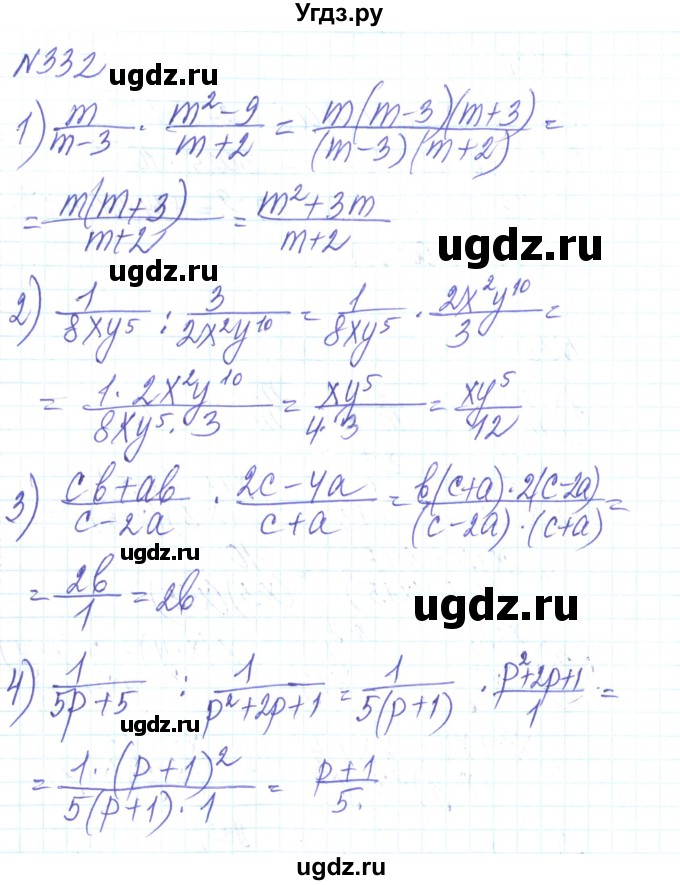 Угдз.ру
№332
ugdz.ru
1) m/(m-3) · (m²-9)/(m+2) = m(m-3)(m+3)/((m-3)(m+2)) =
ugdz.ru
= m(m+3)/(m+2) = (m²+3m)/(m+2)
ugdz.ru
ugdz.ru
2) 1/(8xy⁵) : 3/(2x²y¹⁰) = 1/(8xy⁵) · 2x²y¹⁰/3 =
= 1·2x²y¹⁰/(8xy⁵·3) = xy⁵/(4·3) = xy⁵/12
ugdz.ru
3) (cb+ab)/(c-2a) · (2c-4a)/(c+a) = b(c+a)·2(c-2a)/((c-2a)·(c+a)) =
ugdz.ru
= 2b/1 = 2b
ugdz.ru
4) 1/(5p+5) : 1/(p²+2p+1) = 1/(5(p+1)) · (p²+2p+1)/1 =
ugdz.ru
= 1·(p+1)²/(5(p+1)·1) = (p+1)/5.
ugdz.ru